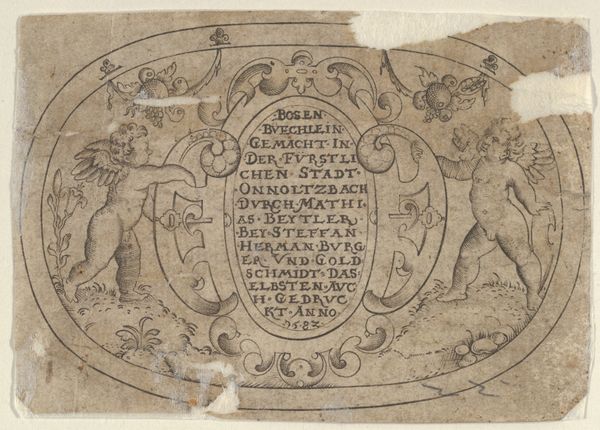 BOSEN·
BVECHLEIN·
GEMACHT·IN·
DER·FÜRSTLI
CHEN·STADT·
ONNOLTZBACH
DVRCH·MATHI·
AS·BEYTLER·
BEY·STEFFAN·
HERMAN·BVRG
ER·VND·GOLD
SCHMIDT·DAS
ELBSTEN·AVC
H·GEDRVC
KT·ANNO·
1582